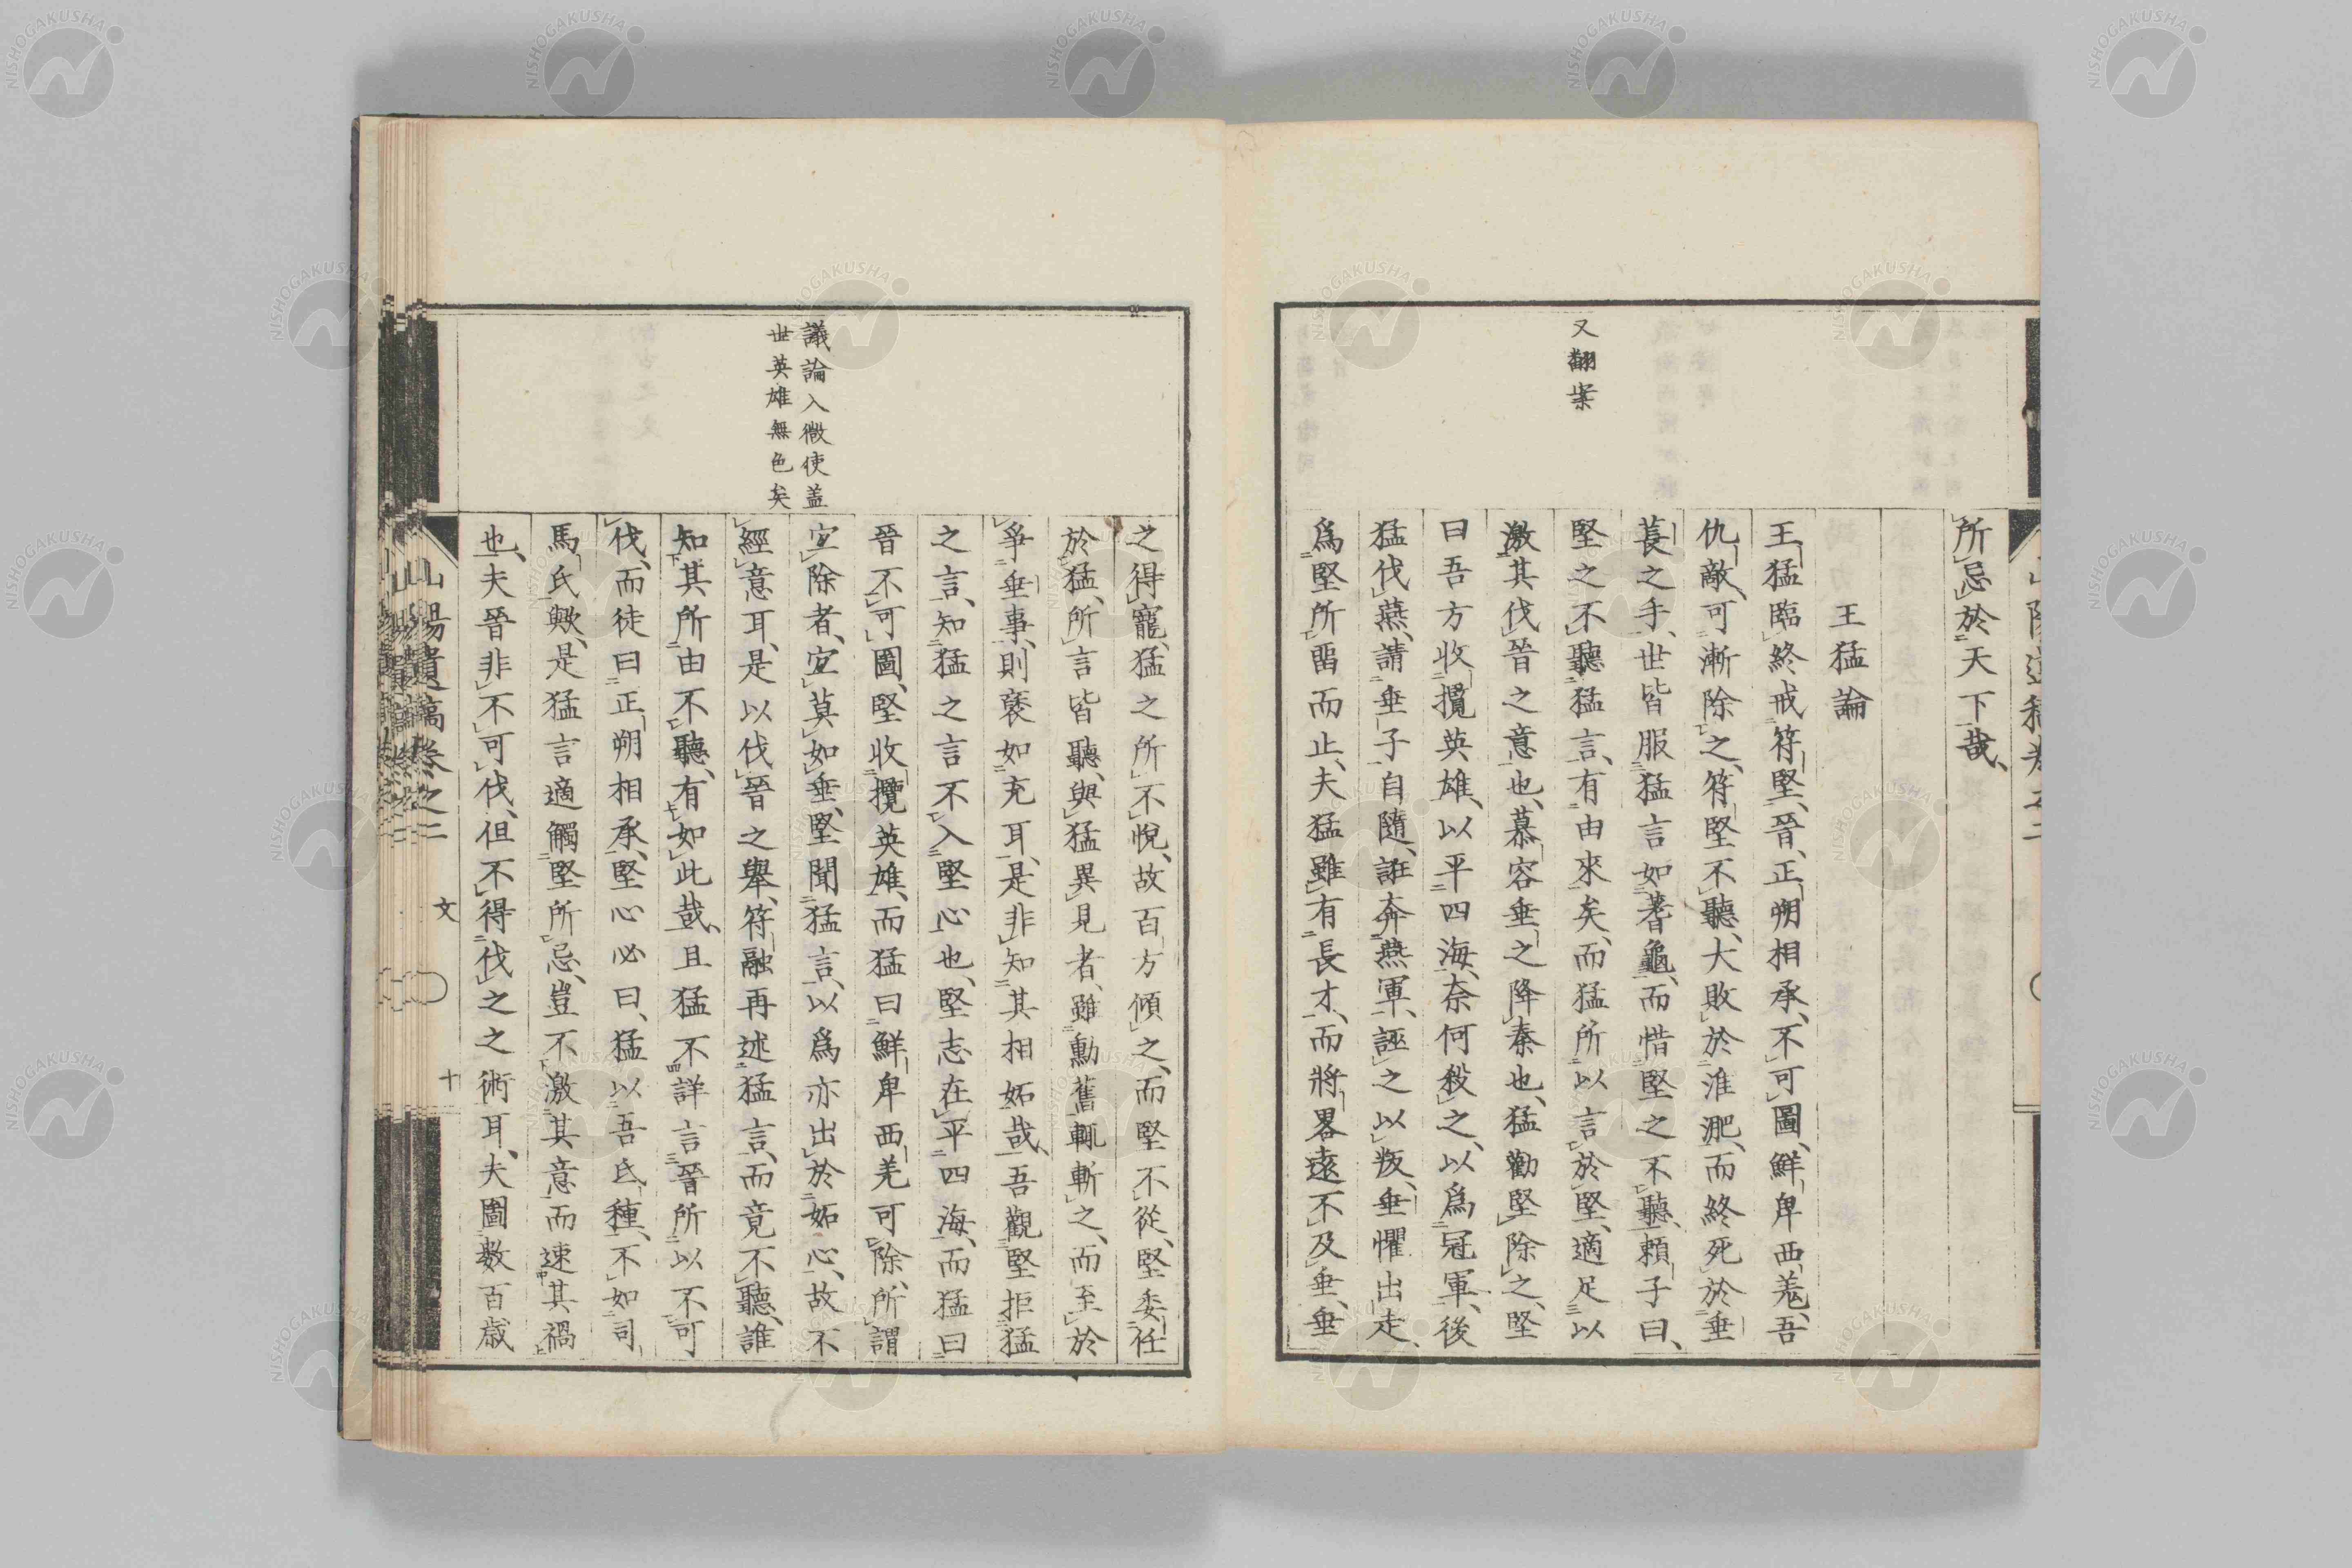 所忌於天下哉、
王猛論
王猛臨終戒符堅、晉、正朔相承、不可圖、鮮卑西羗、吾
仇敵、可漸除之、符堅不聽、大敗於淮淝、而終死於垂
萇之手、世皆服猛言如蓍龜、而惜堅之不聽、賴子曰、
堅之不聽猛言、有由來矣、而猛所以言於堅、適足以
激其伐晉之意也、慕容垂之降秦也、猛勸堅除之、堅
曰吾方收攬英雄、以平四海、奈何殺之、以爲冠軍、後
猛伐燕、請垂子自隨、誑奔燕軍、誣之以叛、垂懼出走、
爲堅所畱而止、夫猛雖有長才、而將畧遠不及垂、垂
又翻案
之得寵、猛之所不悅、故百方傾之、而堅不從、堅委任
於猛、所言皆聽、與猛異見者、雖勳舊輒斬之、而至於
爭垂事、則褎如充耳、是非知其相妬哉、吾觀堅拒猛
之言、知猛之言不入堅心也、堅志在平四海、而猛曰
晉不可圖、堅收攬英雄、而猛曰鮮卑西羌可除、所謂
宜除者、宜莫如垂、堅聞猛言、以爲亦出於妬心、故不
經意耳、是以伐晉之舉、符融再述猛言、而竟不聽、誰
知其所由不聽、有如此哉、且猛不詳言晉所以不可
伐、而徒曰正朔相承、堅心必曰、猛以吾氐種、不如司
馬氏歟、是猛言適觸堅所忌、豈不激其意而速其禍
也、夫晉非不可伐、但不得伐之之術耳、夫圖數百歲
議論入微使盖
世英雄無色矣
山陽遺稿卷之二
文
十
NISHOGAKUSHA